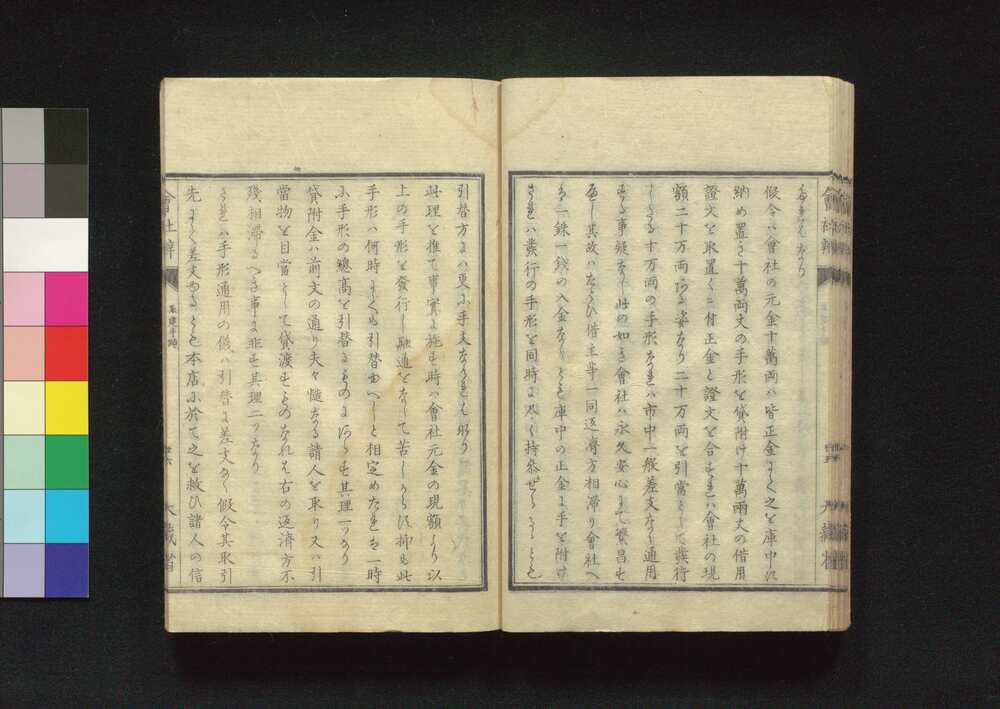 なきはなり
假令ハ會社の元金十萬兩ハ皆正金にて之を庫中に
納め置き十萬兩丈の手形を貸附け十萬兩丈の借用
證文を取置くに付正金と證文を合すれハ會社の現
額二十万両ある姿なり二十万両を引當として發行
したる十万両の手形なれハ市中一般差支なく通用
する事疑なし此の如き會社ハ永久安心にて繁昌す
べし其故ハたとひ借主等一同返濟方相滯り會社へ
は一銖一錢の入金なしとも庫中の正金に手を附け
されハ發行の手形を同時に悉く持参せらるゝとも
引替方にハ更に手支なけれはなり
此理を推て事實に施す時ハ會社元金の現額より以
上の手形を發行し融通をなして苦しからす抑も此
手形ハ何時にても引替ゆへしと相定めたれは一時
に手形の總高を引替るものにあらす其理一つなり
貸附金ハ前文の通り夫々慥なる諸人を取り又ハ引
當物を目當として貸渡すものなれは右の返濟方不
殘相滯るへき事に非す其理二つなり
されハ手形通用の儀ハ引替に差支なく假令其取引
先にて差支ゆるとも本店に於て之を救ひ諸人の信
會社辨
大藏省